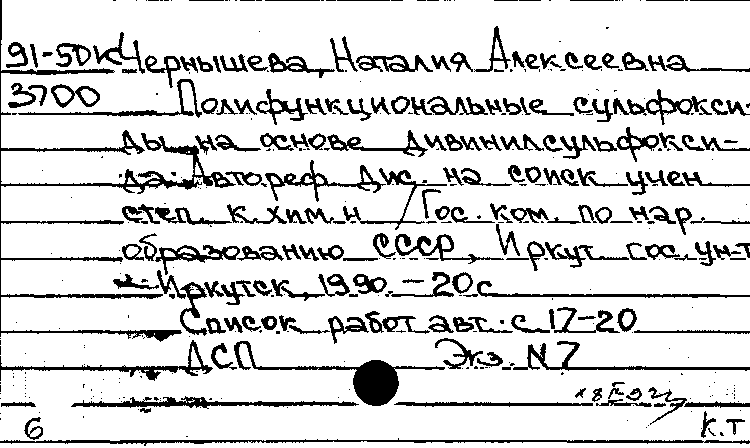 91-5DK Чернышева, Наталия Алексеевна
3700 Полифункциональные сульфокси-
ды на основе дивинилсульфокси-
да: Автореф. дис. на соиск. учен.
степ. к. хим. н. / Гос. ком. по нар.
образованию СССР, Иркут. гос. ун-т
- Иркутск, 1990. - 20 с
Список работ авт.: с. 17-20
ДСП Экз. N 7
6 К.Т